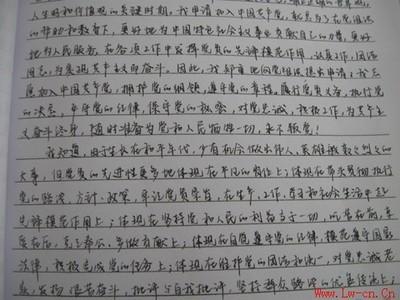 人生观和价值观的关键时期，我申请加入中国共产党，就是为了在党组织
的帮助和教育下，更好地为中国特色社会主义事业贡献自己的力量，更好
地为人民服务，在各项工作中发挥党员的先锋模范作用，认真工作，团结
同志，为实现共产主义而奋斗。因此，我郑重地向党组织提出申请：我志
愿加入中国共产党，拥护党的纲领，遵守党的章程，履行党员义务，执行党
的决定，严守党的纪律，保守党的秘密，对党忠诚，积极工作，为共产主
义奋斗终身，随时准备为党和人民牺牲一切，永不叛党！
我知道，由于生长在和平年代，少有机会做出伟人、英雄般轰轰烈烈的
大事，但党员的先进性更多地体现在平凡的岗位上；体现在带头贯彻执行
党的路线、方针、政策，牢记党员宗旨，在生产、工作、学习和社会生活中起
先锋模范作用上；体现在坚持党和人民的利益高于一切，吃苦在前，享
受在后，克己奉公，多做贡献上；体现在自觉遵守党的纪律，模范遵守国家
法律，积极完成党的任务上；体现在维护党的团结和统一，对党忠诚老
实，发扬
艰苦奋斗，批评与自我批评，坚持群众路线的优良传统上；
www.Lw-cn.Cn